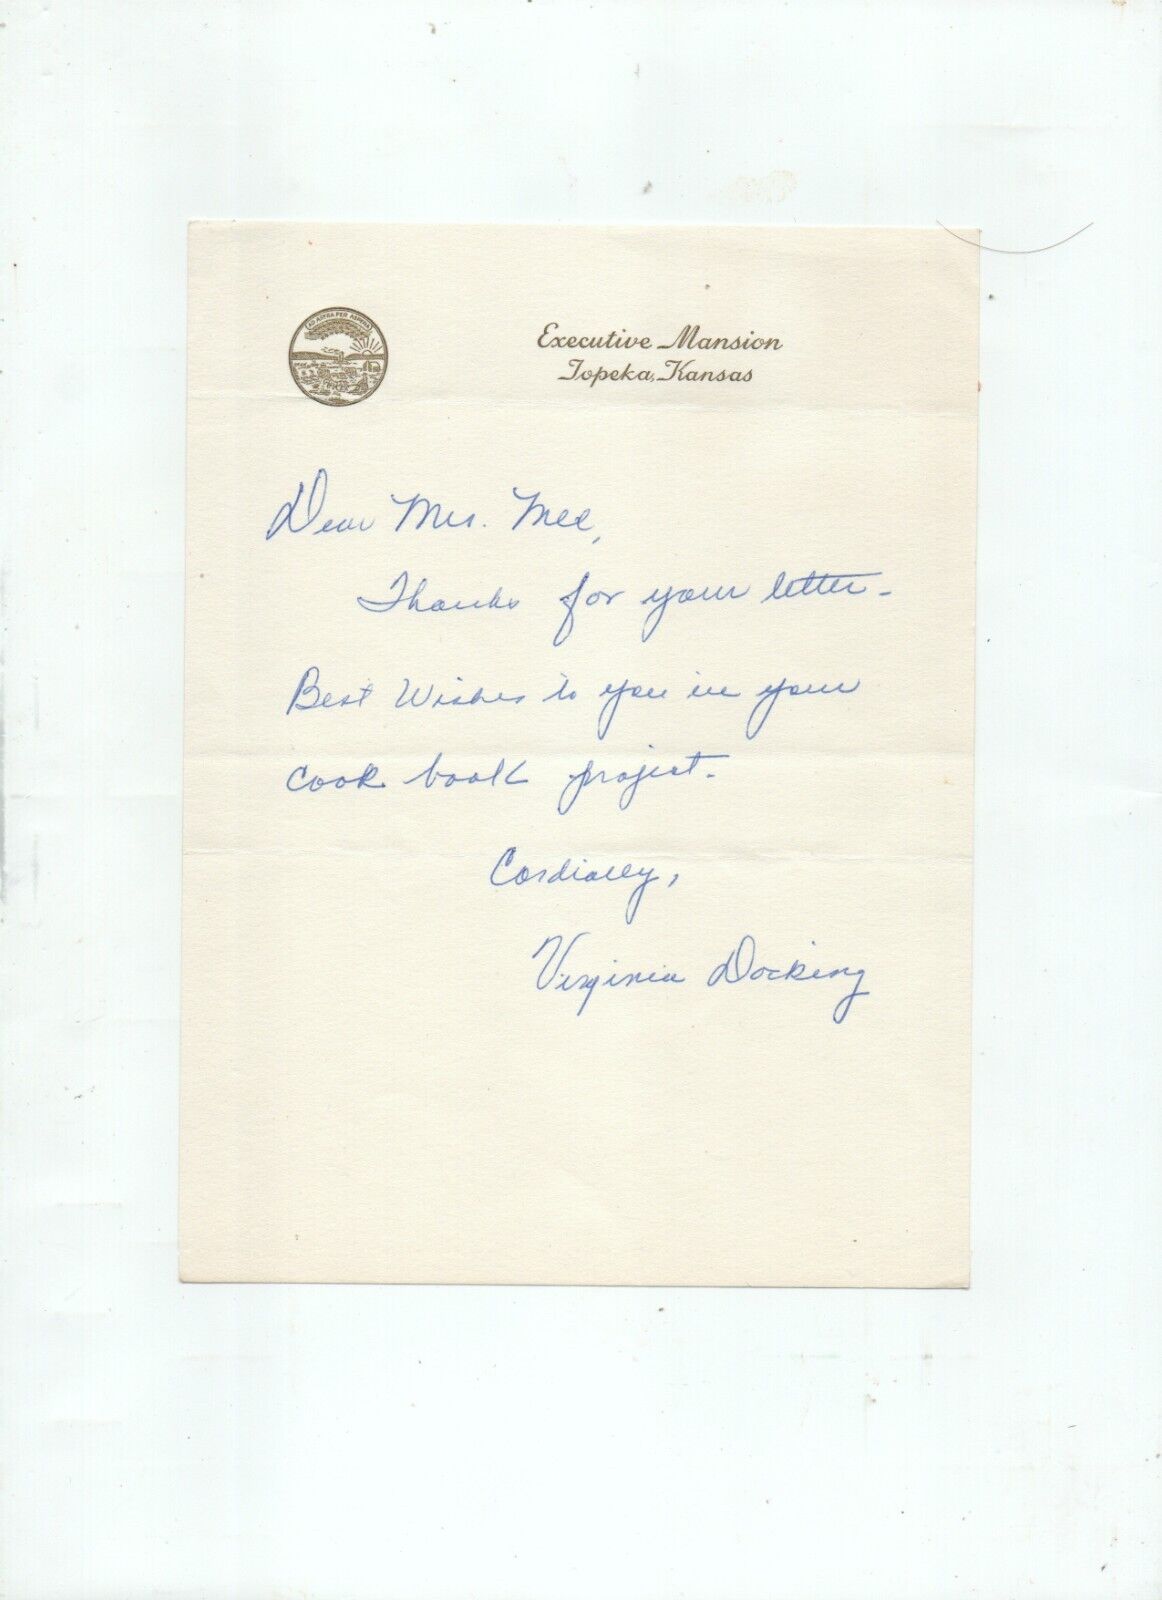 AD ASTRA PER ASPERA
Executive Mansion
Topeka, Kansas
Dear Mrs. Mee,
Thanks for your letter -
Best Wishes to you in your
cook book project -
Cordially,
Virginia Docking